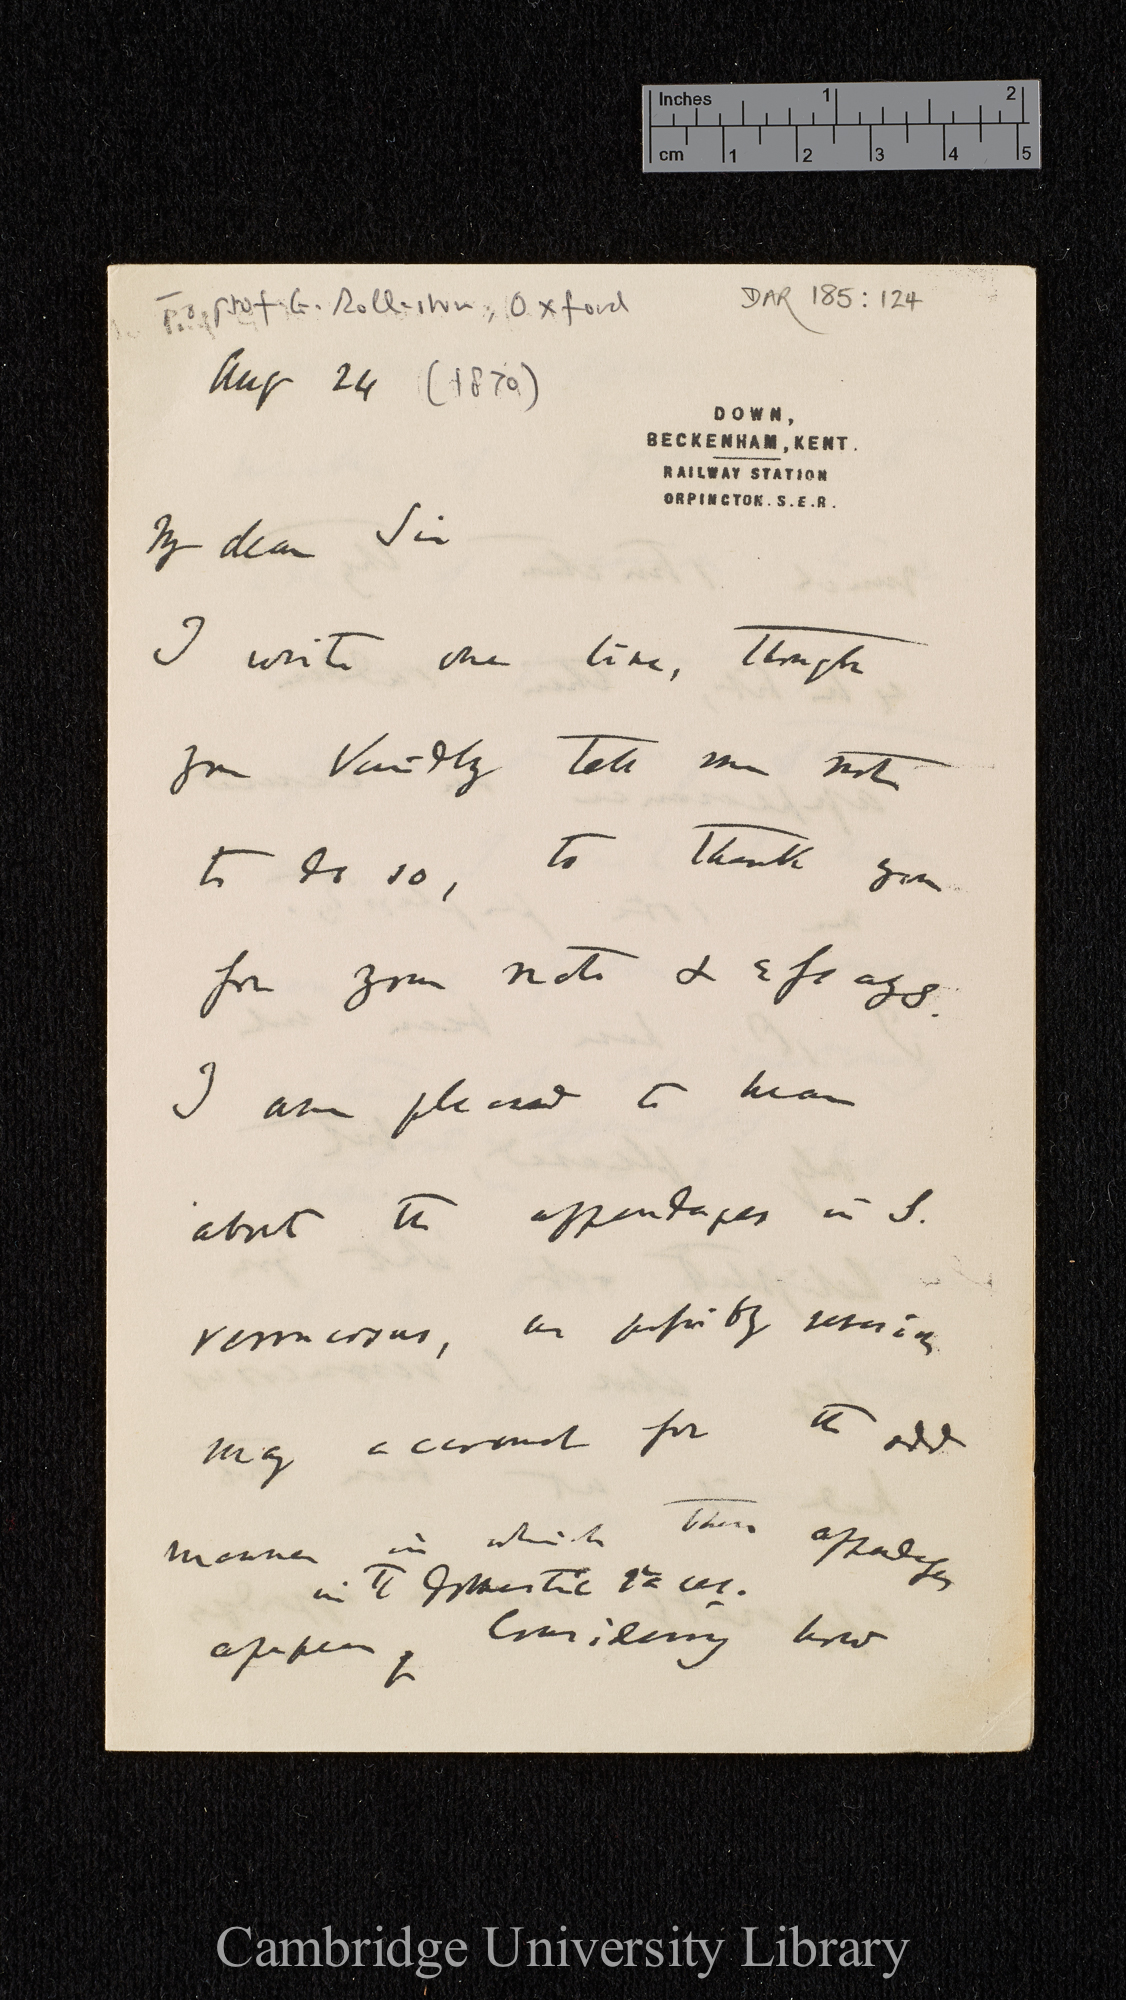 Inches 1 2
cm 1 2 3 4 5
To Prof G. Rolleston, Oxford
DAR 185:124
Aug 24 (1879)
DOWN,
BECKENHAM, KENT.
RAILWAY STATION
ORPINGTON. S.E.R.
My dear Sir
I write one line, though
you kindly tell me not
to do so, to thank you
for your note & essays.
I am pleased to hear
about the appendages in S.
verrucosus, as possibly reversion
may account for the odd
manner in which these appendages
in the domestic races.
appear, Considering how
Cambridge University Library